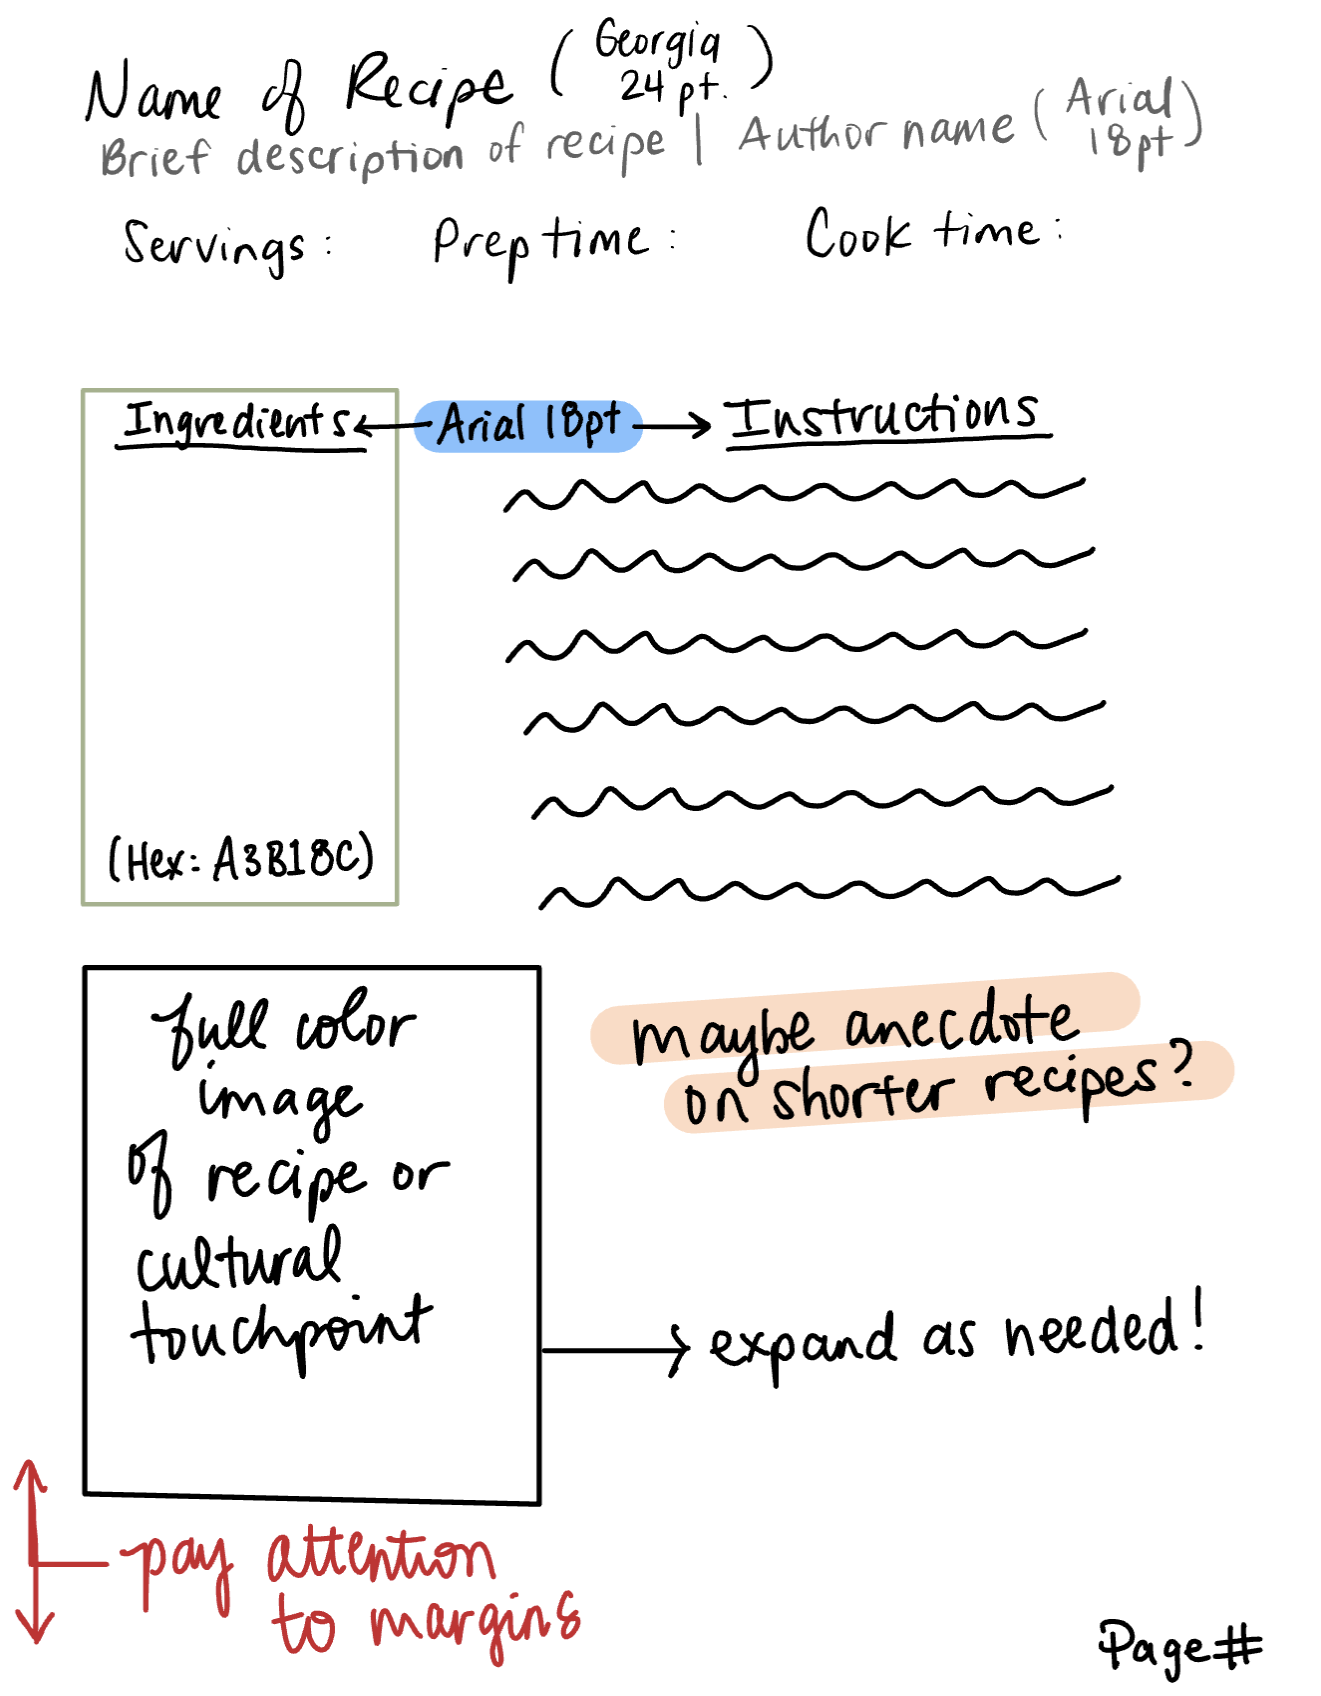 Name of Recipe (Georgia 24 pt.)
Brief description of recipe | Author name (Arial 18pt)
Servings: Prep time: Cook time:
Ingredients Arial 18pt Instructions
(Hex: A3B18C)
full color
image
of recipe or
cultural
touchpoint
maybe anecdote
on shorter recipes?
expand as needed!
pay attention
to margins
Page#